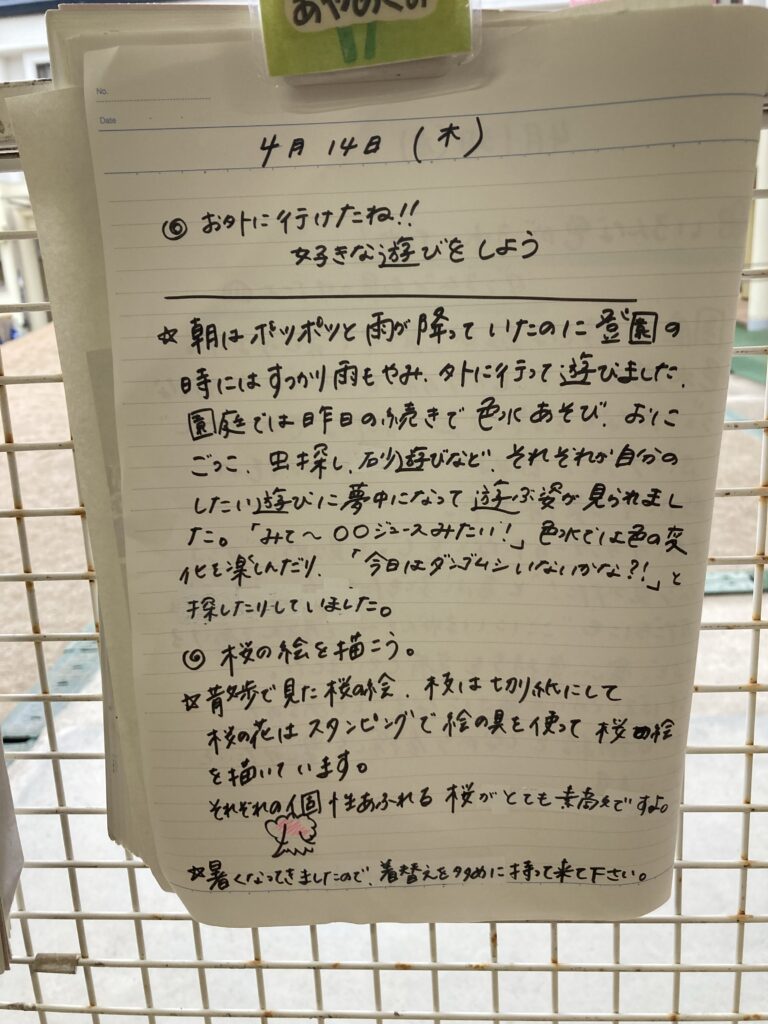 あやめぐみ
No.
Date
4月14日(木)
◎ お外に行けたね!!
好きな遊びをしよう
☆ 朝はポツポツと雨が降っていたのに登園の
時にはすっかり雨もやみ、外に行って遊びました。
園庭では昨日の続きで色水あそび、おに
ごっこ、虫探し、砂遊びなど、それぞれが自分の
したい遊びに夢中になって遊ぶ姿が見られまし
た。「みて〜 〇〇ジュースみたい!」色水では色の変
化を楽しんだり、「今日はダンゴムシいないかな?!」と
探したりしていました。
◎ 桜の絵を描こう。
☆散歩で見た桜の絵、枝は切り紙にして
桜の花はスタンピングで絵の具を使って桜の絵
を描いています。
それぞれの個性あふれる桜がとても素敵ですよ。
☆暑くなってきましたので、着替えを多めに持って来て下さい。